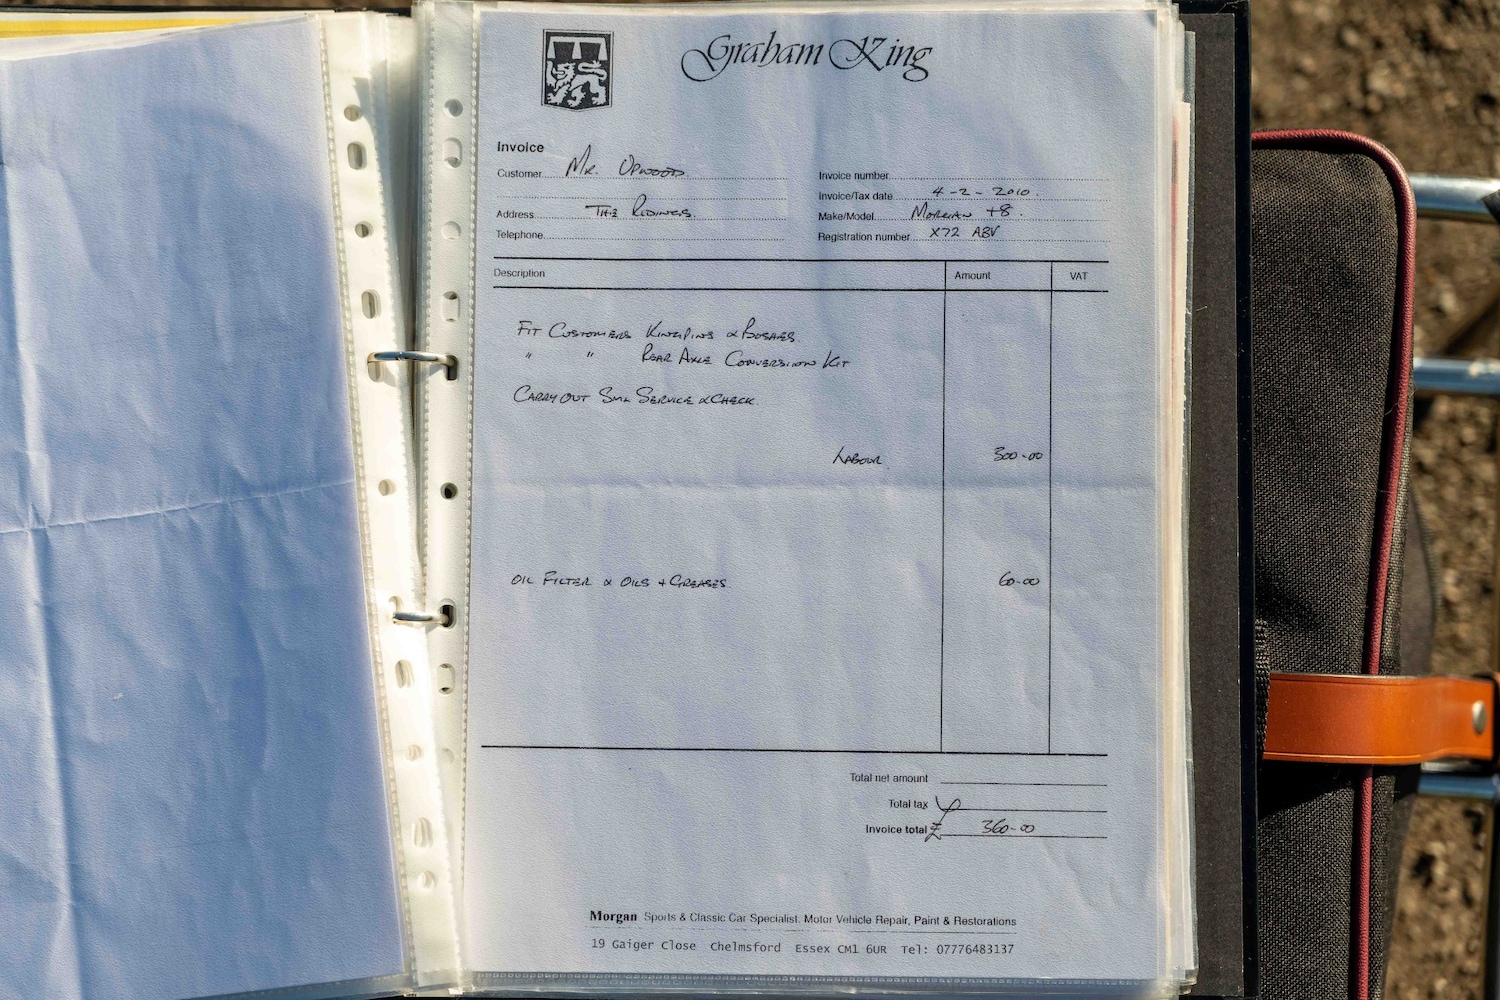 Graham King
Invoice
Customer Mr. Upwood
Address The Ridings
Telephone
Invoice number
Invoice/Tax date 4-2-2010.
Make/Model Morgan +8.
Registration number X72 ABV
Description Amount VAT
Fit Customers KingPins & Bushes
" " Rear Axle Conversion Kit
Carry out Service & Check.
Labour 300-00
Oil Filter & Oils + Greases 60-00
Total net amount
Total tax
Invoice total £ 360-00
Morgan Sports & Classic Car Specialist. Motor Vehicle Repair, Paint & Restorations
19 Gaiger Close Chelmsford Essex CM1 6UR Tel: 07776483137